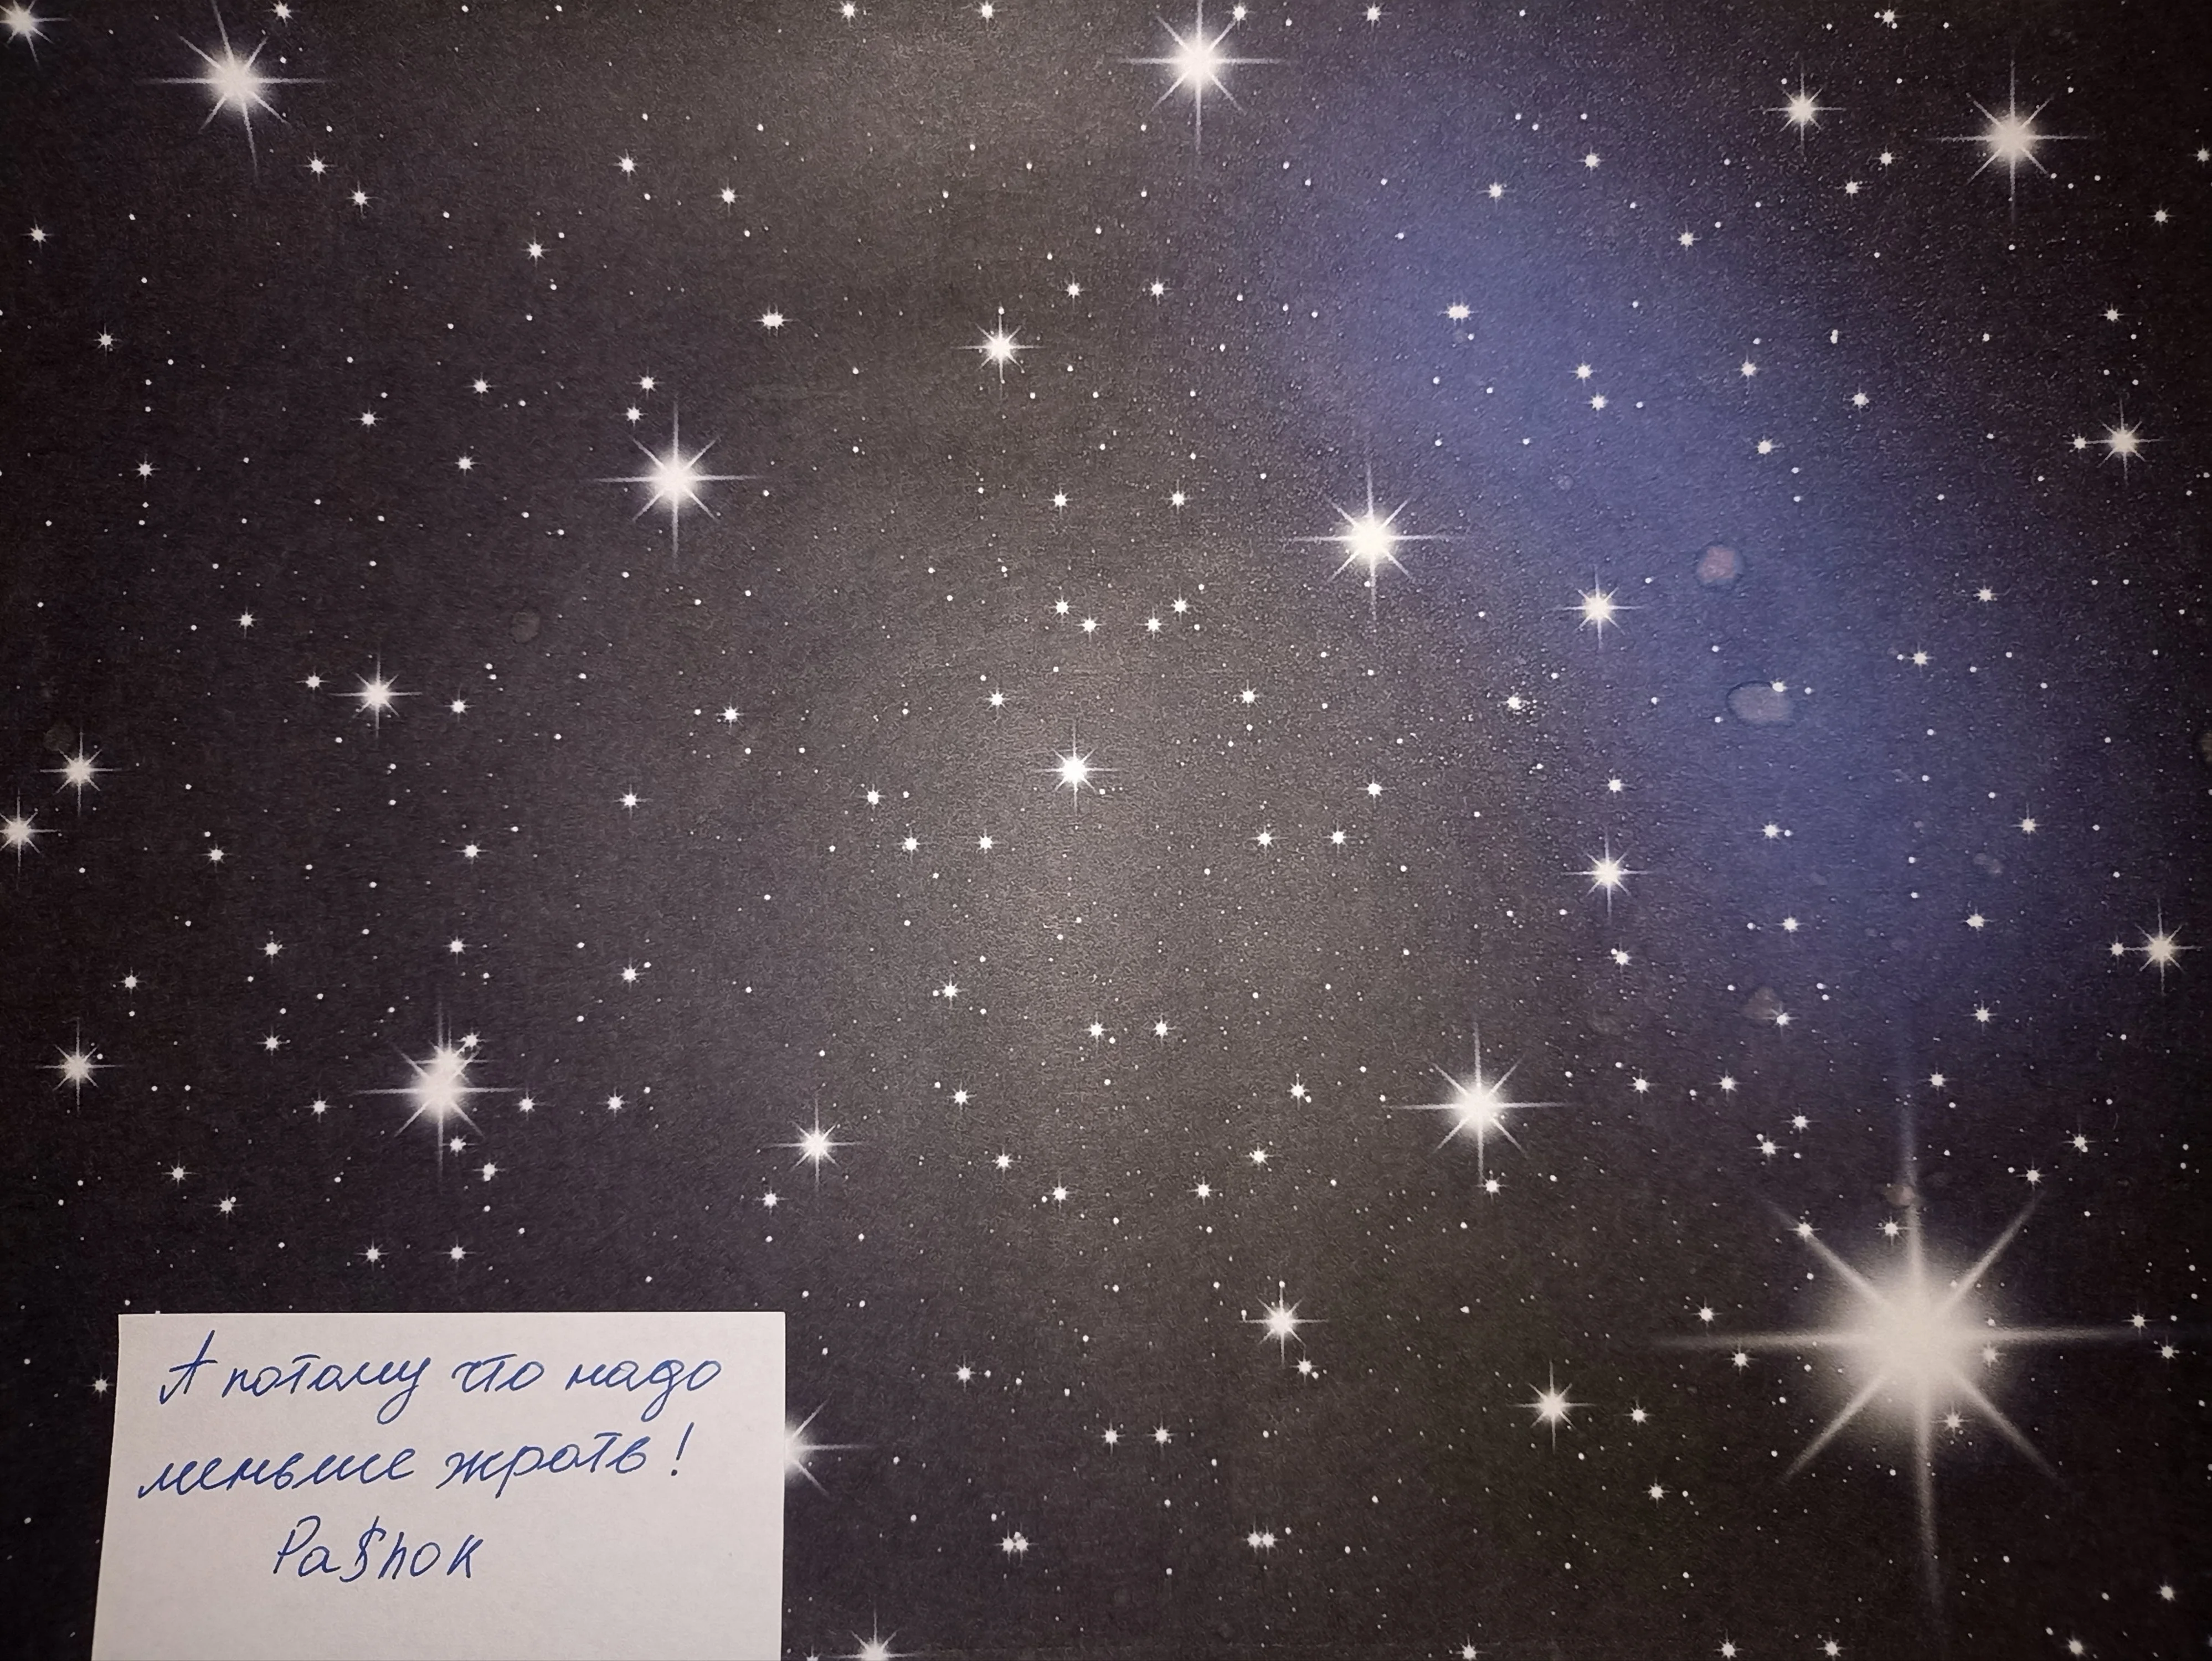 А потому что надо
меньше жрать!
Pa$hok